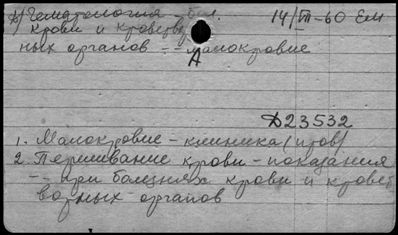 1) Гематология - бол. 14/III-60 Ем
крови и кроветвор
ных органов -- малокровие
А
Д23532
1. Малокровие - клиника (пров)
2. Переливание крови - показания
-- при болезнях крови и кровет
ворных органов